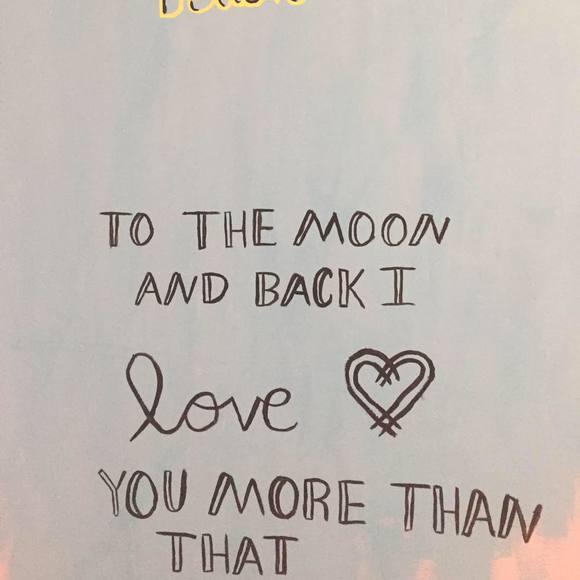 TO THE MOON
AND BACK I
love
YOU MORE THAN
THAT